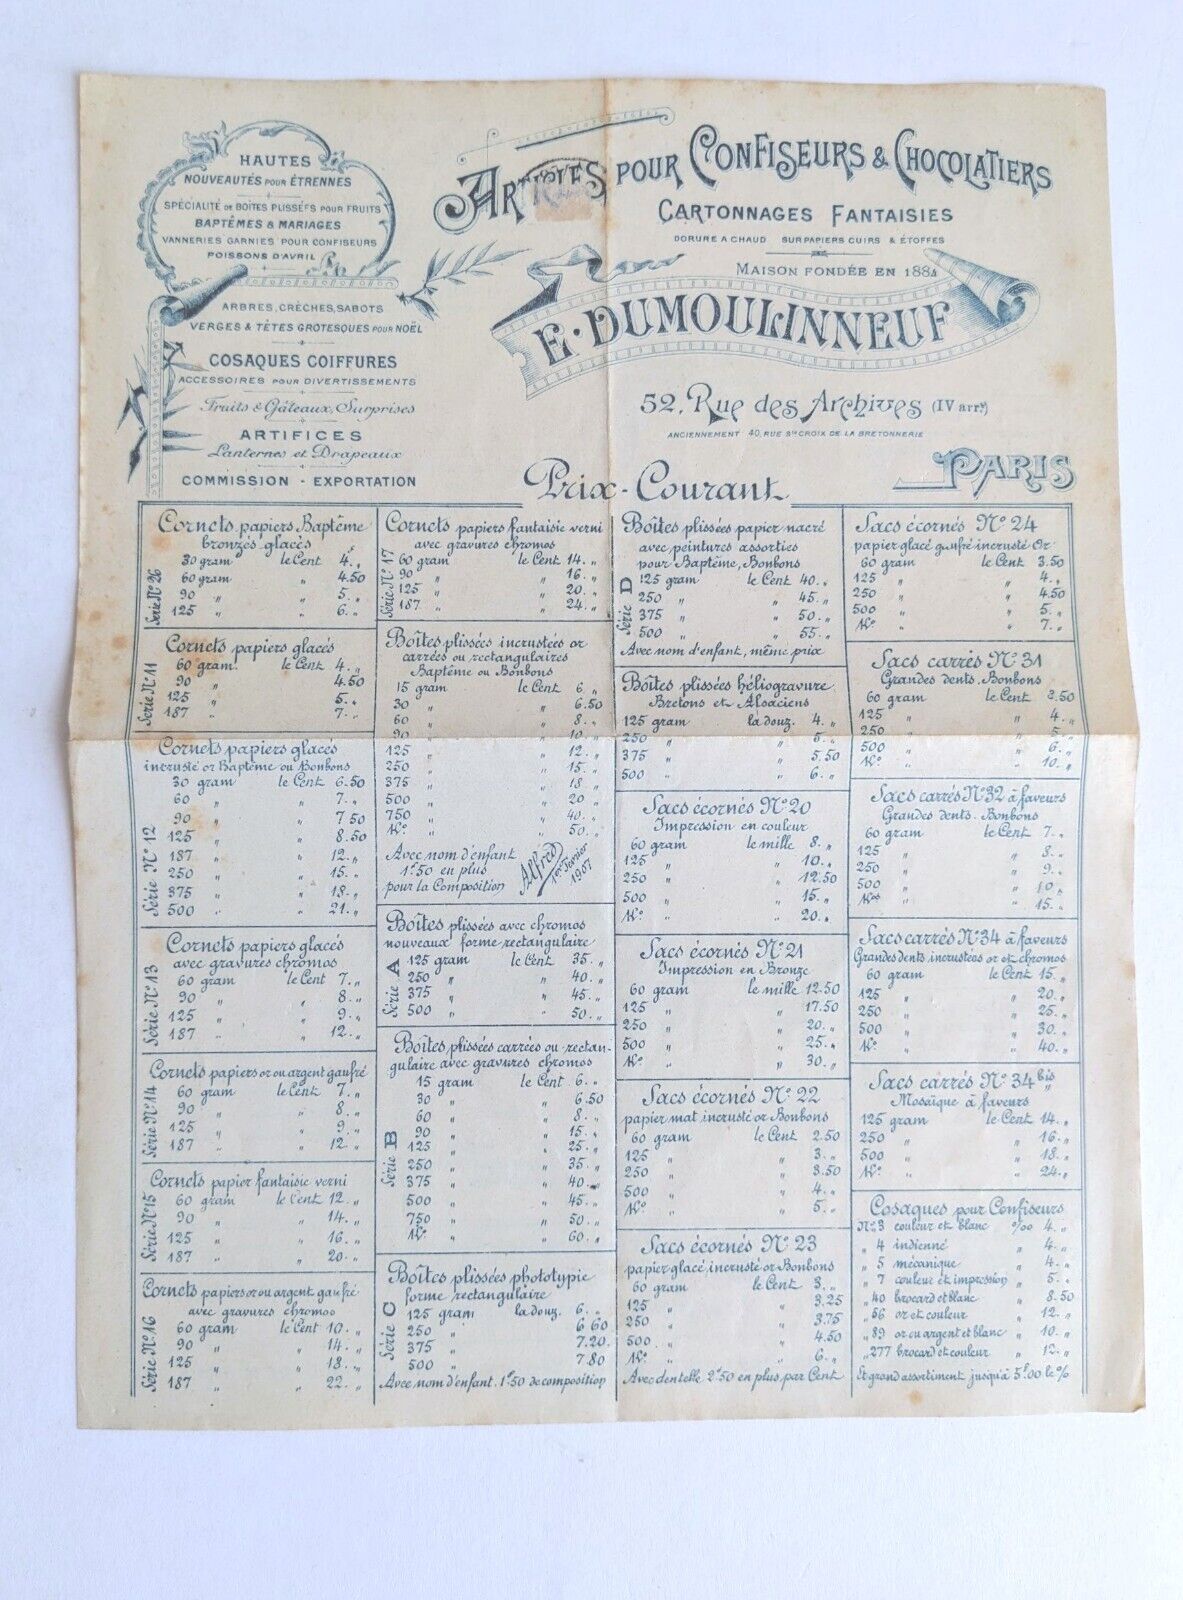 HAUTES
NOUVEAUTÉS POUR ÉTRENNES
SPÉCIALITÉ DE BOÎTES PLISSÉES POUR FRUITS
BAPTÊMES & MARIAGES
VANNERIES GARNIES POUR CONFISEURS
POISSONS D'AVRIL
ARBRES, CRÈCHES, SABOTS
VERGES & TÊTES GROTESQUES POUR NOËL
COSAQUES COIFFURES
ACCESSOIRES POUR DIVERTISSEMENTS
Fruits & Gâteaux, Surprises
ARTIFICES
Lanternes et Drapeaux
COMMISSION - EXPORTATION
ARTICLES POUR CONFISEURS & CHOCOLATIERS
CARTONNAGES FANTAISIES
DORURE A CHAUD SUR PAPIERS CUIRS & ÉTOFFES
MAISON FONDÉE EN 1884
E. DUMOULINNEUF
52, Rue des Archives (IV arrt)
ANCIENNEMENT 40, RUE Ste CROIX DE LA BRETONNERIE
PARIS
Prix-Courant
Cornets papiers Baptême
bronzés glacés
Série N° 26
30 gram le Cent 4. "
60 gram " 4.50
90 " " 5. "
125 " " 6. "
Cornets papiers glacés
Série N° 11
60 gram. le Cent 4. "
90 " 4.50
125 " " 5. "
187 " " 7. "
Cornets papiers glacés
incrusté or Baptême ou Bonbons
Série N° 12
30 gram le Cent 6.50
60 " " 7. "
90 " " 7.50
125 " " 8.50
187 " " 12. "
250 " " 15. "
375 " " 18. "
500 " " 21. "
Cornets papiers glacés
avec gravures chromos
Série N° 13
60 gram le Cent 7. "
90 " " 8. "
125 " " 9. "
187 " " 12. "
Cornets papiers or ou argent gaufré
Série N° 14
60 gram le Cent 7. "
90 " " 8. "
125 " " 9. "
187 " " 12. "
Cornets papier fantaisie verni
Série N° 15
60 gram le Cent 12. "
90 " " 14. "
125 " " 16. "
187 " " 20. "
Cornets papiers or ou argent gaufré
avec gravures chromos
Série N° 16
60 gram le Cent 10. "
90 " " 14. "
125 " " 18. "
187 " " 22. "
Cornets papiers fantaisie verni
avec gravures chromos
Série N° 17
60 gram le Cent 14. "
90 " " 16. "
125 " " 20. "
187 " " 24. "
Boîtes plissées incrustées or
carrées ou rectangulaires
Baptême ou Bonbons
15 gram le Cent 6 "
30 " " 6.50
60 " " 8. "
90 " " 10. "
125 " " 12. "
250 " " 15. "
375 " " 18 "
500 " " 20 "
750 " " 40. "
K° " " 50. "
Avec nom d'enfant
1f50 en plus
pour la Composition
Alfred
1er Février
1907
Boîtes plissées avec chromos
nouveaux forme rectangulaire
Série A
125 gram le Cent 35. "
250 " " 40. "
375 " " 45. "
500 " " 50. "
Boîtes plissées carrées ou rectan-
gulaire avec gravures chromos
Série B
15 gram le Cent 6. "
30 " " 6.50
60 " " 8. "
90 " " 15. "
125 " " 25. "
250 " " 35. "
375 " " 40. "
500 " " 45. "
750 " " 50. "
K° " " 60. "
Boîtes plissées phototypie
forme rectangulaire
Série C
125 gram la douz. 6. "
250 " 6 60
375 " 7.20
500 " 7.80
Avec nom d'enfant. 1f50 de composition
Boîtes plissées papier nacré
avec peintures assorties
pour Baptême, Bonbons
Série D
125 gram le Cent 40. "
250 " " 45. "
375 " " 50. "
500 " " 55. "
Avec nom d'enfant, même prix
Boîtes plissées héliogravure
Bretons et Alsaciens
125 gram la douz. 4. "
250 " " 5. "
375 " " 5.50
500 " " 6. "
Sacs écornés N° 20
Impression en couleur
60 gram le mille 8. "
125 " " 10. "
250 " " 12.50
500 " " 15. "
K° " " 20. "
Sacs écornés N° 21
Impression en Bronze
60 gram le mille 12.50
125 " " 17.50
250 " " 20. "
500 " " 25. "
K° " " 30. "
Sacs écornés N° 22
papier mat incrusté or Bonbons
60 gram le Cent 2.50
125 " " 3. "
250 " " 3.50
500 " " 4. "
K° " " 5. "
Sacs écornés N° 23
papier glacé, incrusté or Bonbons
60 gram le Cent 3. "
125 " " 3.25
250 " " 3.75
500 " " 4.50
K° " " 6. "
Avec dentelle 2f50 en plus par Cent
Sacs écornés N° 24
papier glacé gaufré incrusté Or
60 gram le Cent 3.50
125 " " 4. "
250 " " 4.50
500 " " 5. "
K° " " 7. "
Sacs carrés N° 31
Grandes dents. Bonbons
60 gram le Cent 3.50
125 " " 4. "
250 " " 5. "
500 " " 6. "
K° " " 10. "
Sacs carrés N° 32 à faveurs
Grandes dents. Bonbons
60 gram le Cent 7. "
125 " " 8. "
250 " " 9. "
500 " " 10 "
K° " " 15. "
Sacs carrés N° 34 à faveurs
Grandes dents, incrustées or et chromos
60 gram le Cent 15. "
125 " " 20. "
250 " " 25. "
500 " " 30. "
K° " " 40. "
Sacs carrés N° 34 bis
Mosaïque à faveurs
125 gram le Cent 14. "
250 " " 16. "
500 " " 18. "
K° " " 24. "
Cosaques pour Confiseurs
N° 3 couleur et blanc °/oo 4. "
" 4 indienné " 4. "
" 5 mécanique " 4. "
" 7 couleur et impression " 5. "
" 40 brocard et blanc " 8.50
" 56 or et couleur " 12. "
" 89 or ou argent et blanc " 10. "
" 277 brocard et couleur " 12. "
Et grand assortiment jusqu'à 5f.00 le %